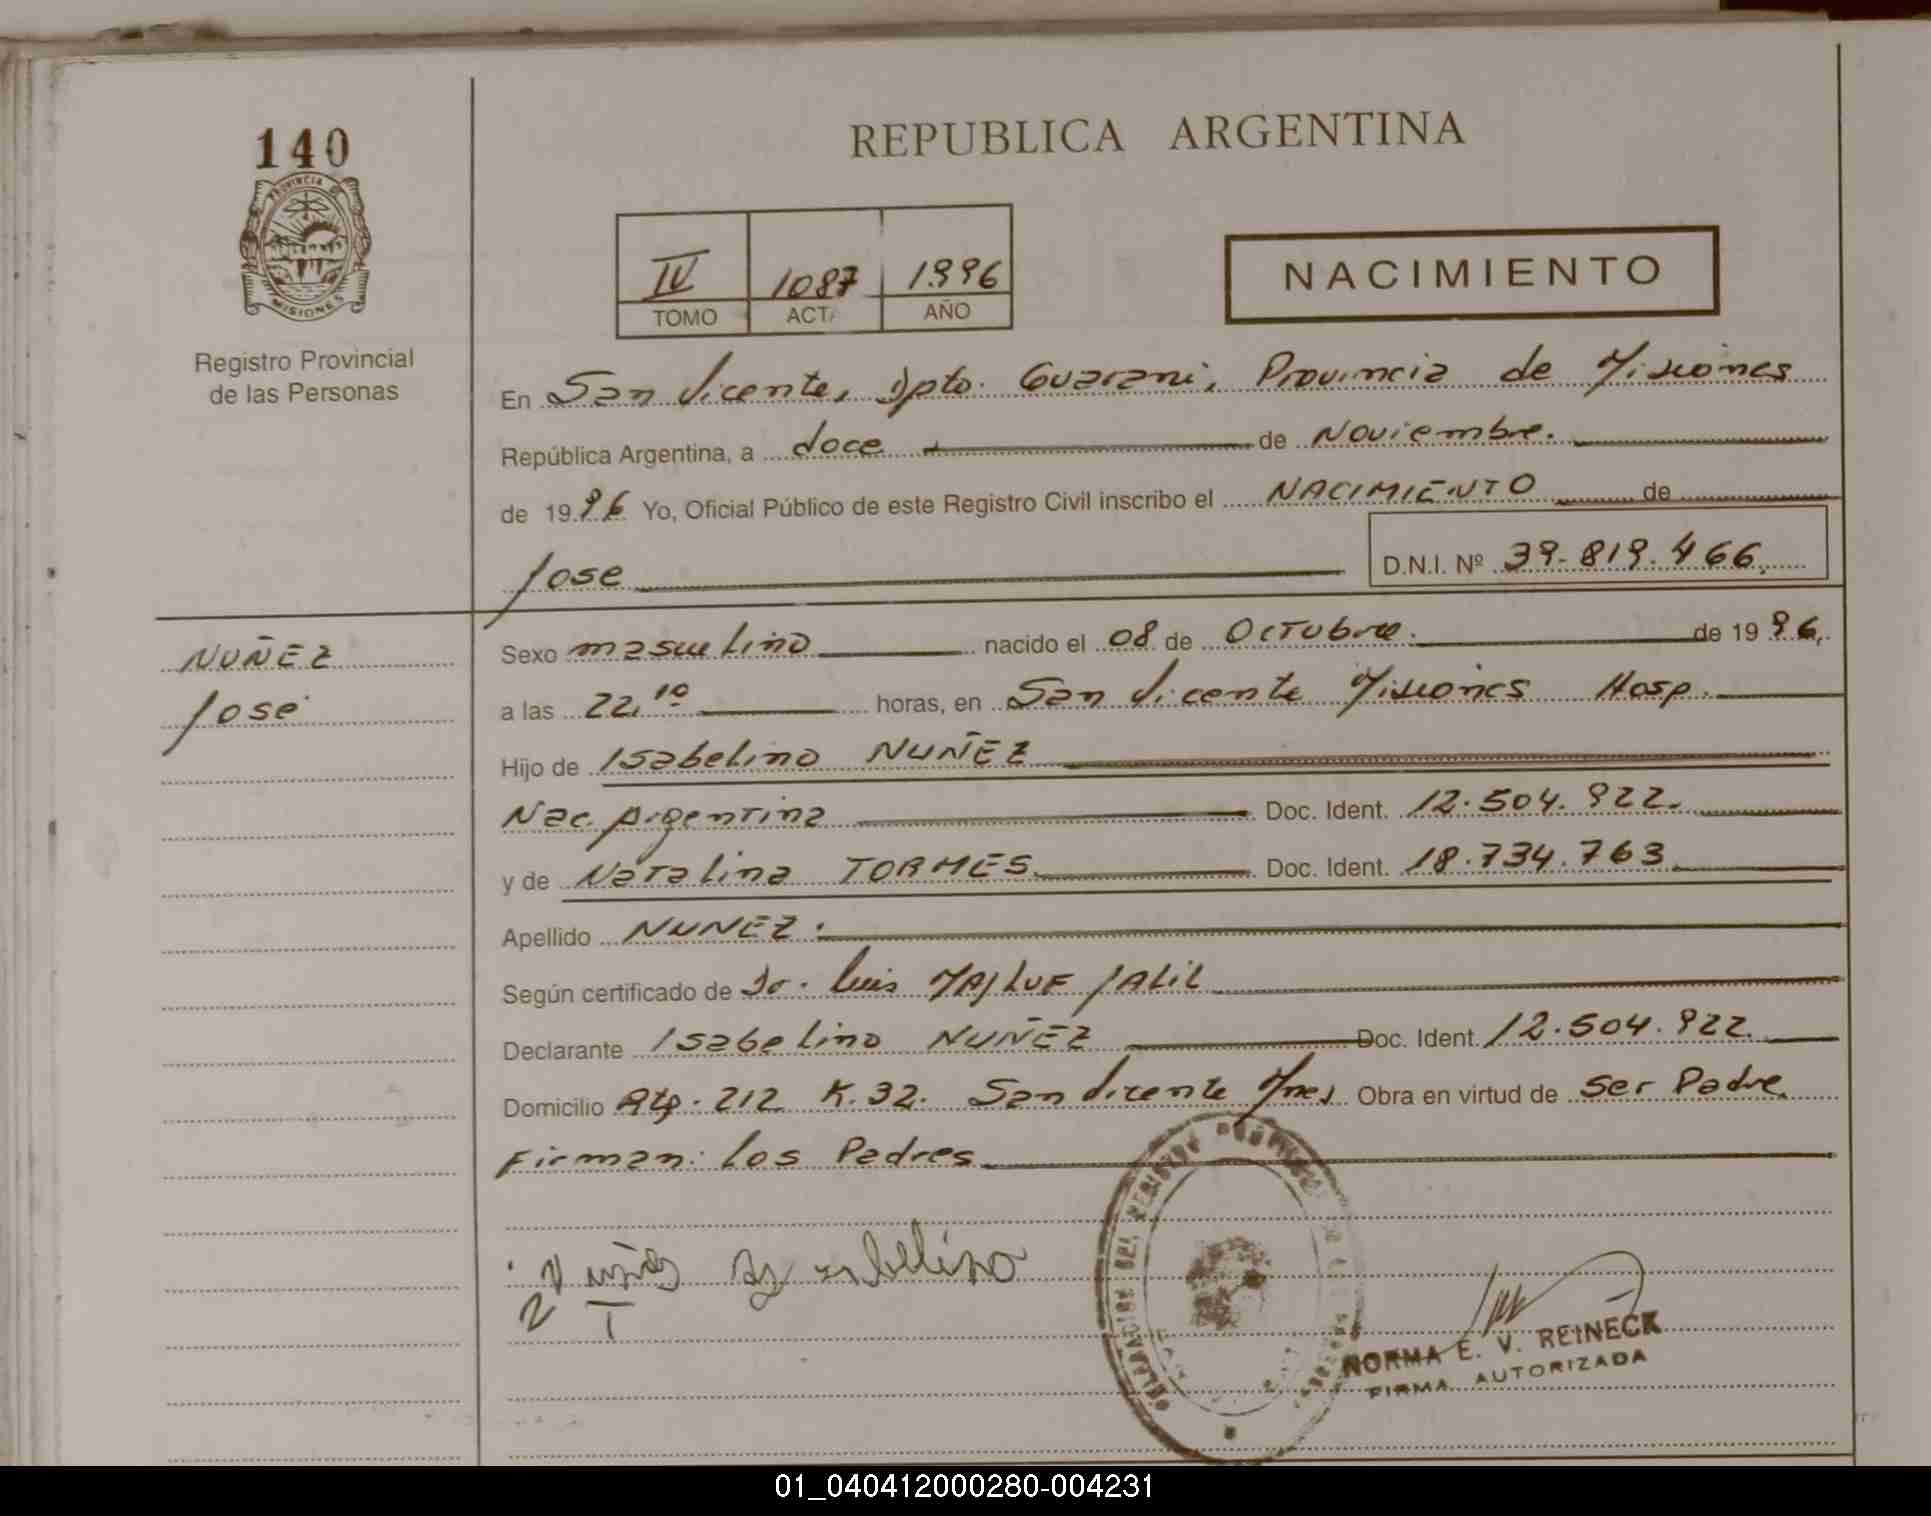 140
PROVINCIA DE
MISIONES
Registro Provincial
de las Personas
REPUBLICA ARGENTINA
IV 1087 1.996
TOMO ACTA AÑO
NACIMIENTO
En San Vicente, Dpto. Guarani, Provincia de Misiones
República Argentina, a doce de Noviembre.
de 1996 Yo, Oficial Público de este Registro Civil inscribo el NACIMIENTO de
Jose D.N.I. Nº 39.819.466.
NUÑEZ
José
Sexo masculino nacido el 08 de Octubre. de 1996.
a las 22,10 horas, en San Vicente Misiones Hosp.
Hijo de Isabelino NUÑEZ
Nac. Argentina Doc. Ident. 12.504.922.
y de Natalina TORMES Doc. Ident. 18.734.763
Apellido NUNEZ.
Según certificado de Dr. Luis JALIL
Declarante Isabelino NUÑEZ Doc. Ident. 12.504.922
Domicilio 212 K.32. San Vicente Mnes Obra en virtud de Ser Padre.
Firman: los Padres
N T
NORMA E. V. REINECK
FIRMA AUTORIZADA
01_040412000280-004231